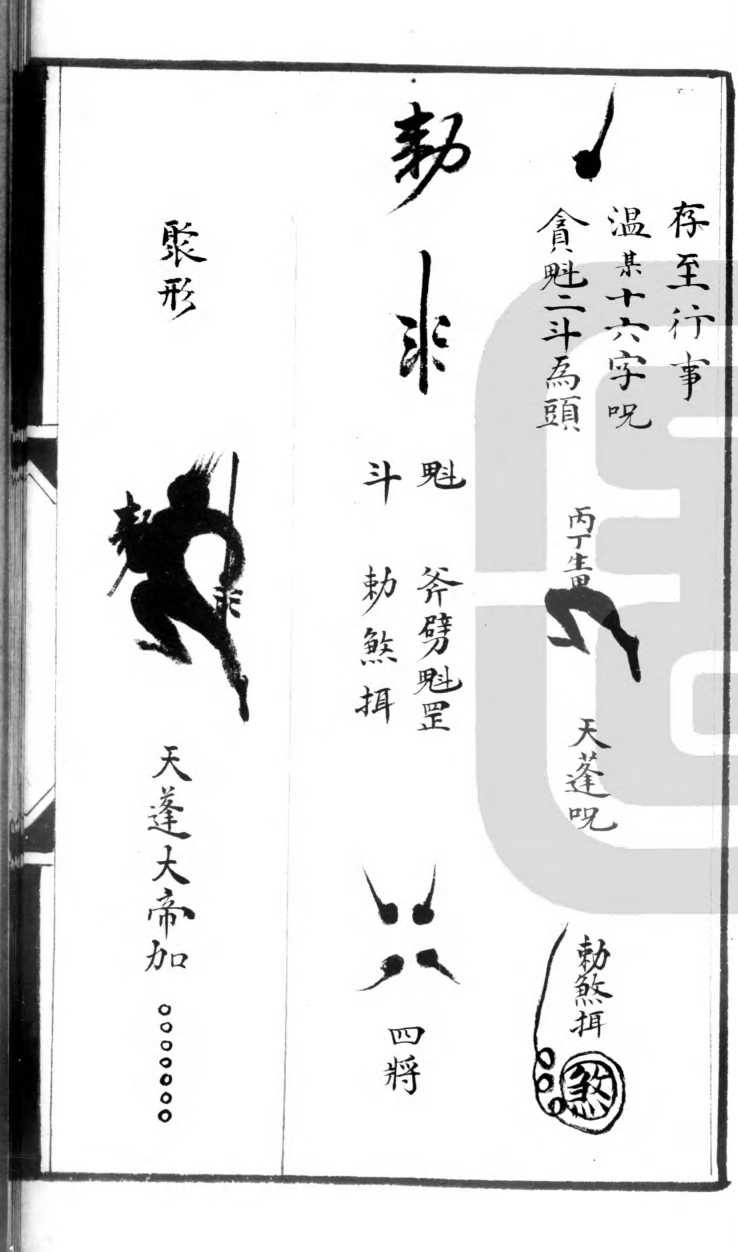 存至行事
温某十六字呪
貪魁二斗為頭
丙丁生
天蓬呪
勅煞抇
煞
勅
魁
斧劈魁罡
斗
勅煞抇
四將
聚形
天蓬大帝加